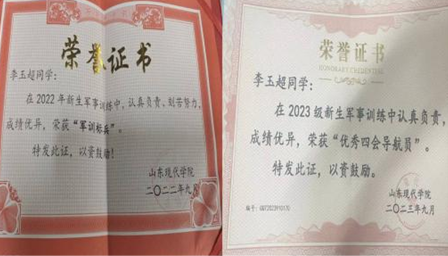 荣誉证书
李玉超同学:
在2022年新生军事训练中,认真负责、刻苦努力,
成绩优异,荣获“军训标兵”。
特发此证,以资鼓励!
山东现代学院
二〇二二年九月
荣誉证书
HONORARY CREDENTIAL
李玉超同学:
在2023级新生军事训练中认真负责,
成绩优异,荣获“优秀四会导航员”。
特发此证,以资鼓励。
山东现代学院
二〇二三年九月
编号: